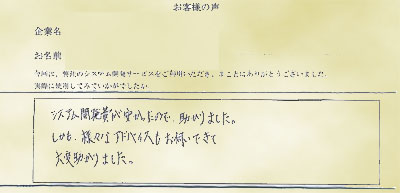 お客様の声
企業名
お名前
今回は、弊社のシステム開発サービスをご利用いただき、まことにありがとうございました。
実際に使用してみていかがでしたか
システム開発費が安かったので、助かりました。
しかも、様々なアドバイスもお伺いできて
大変助かりました。